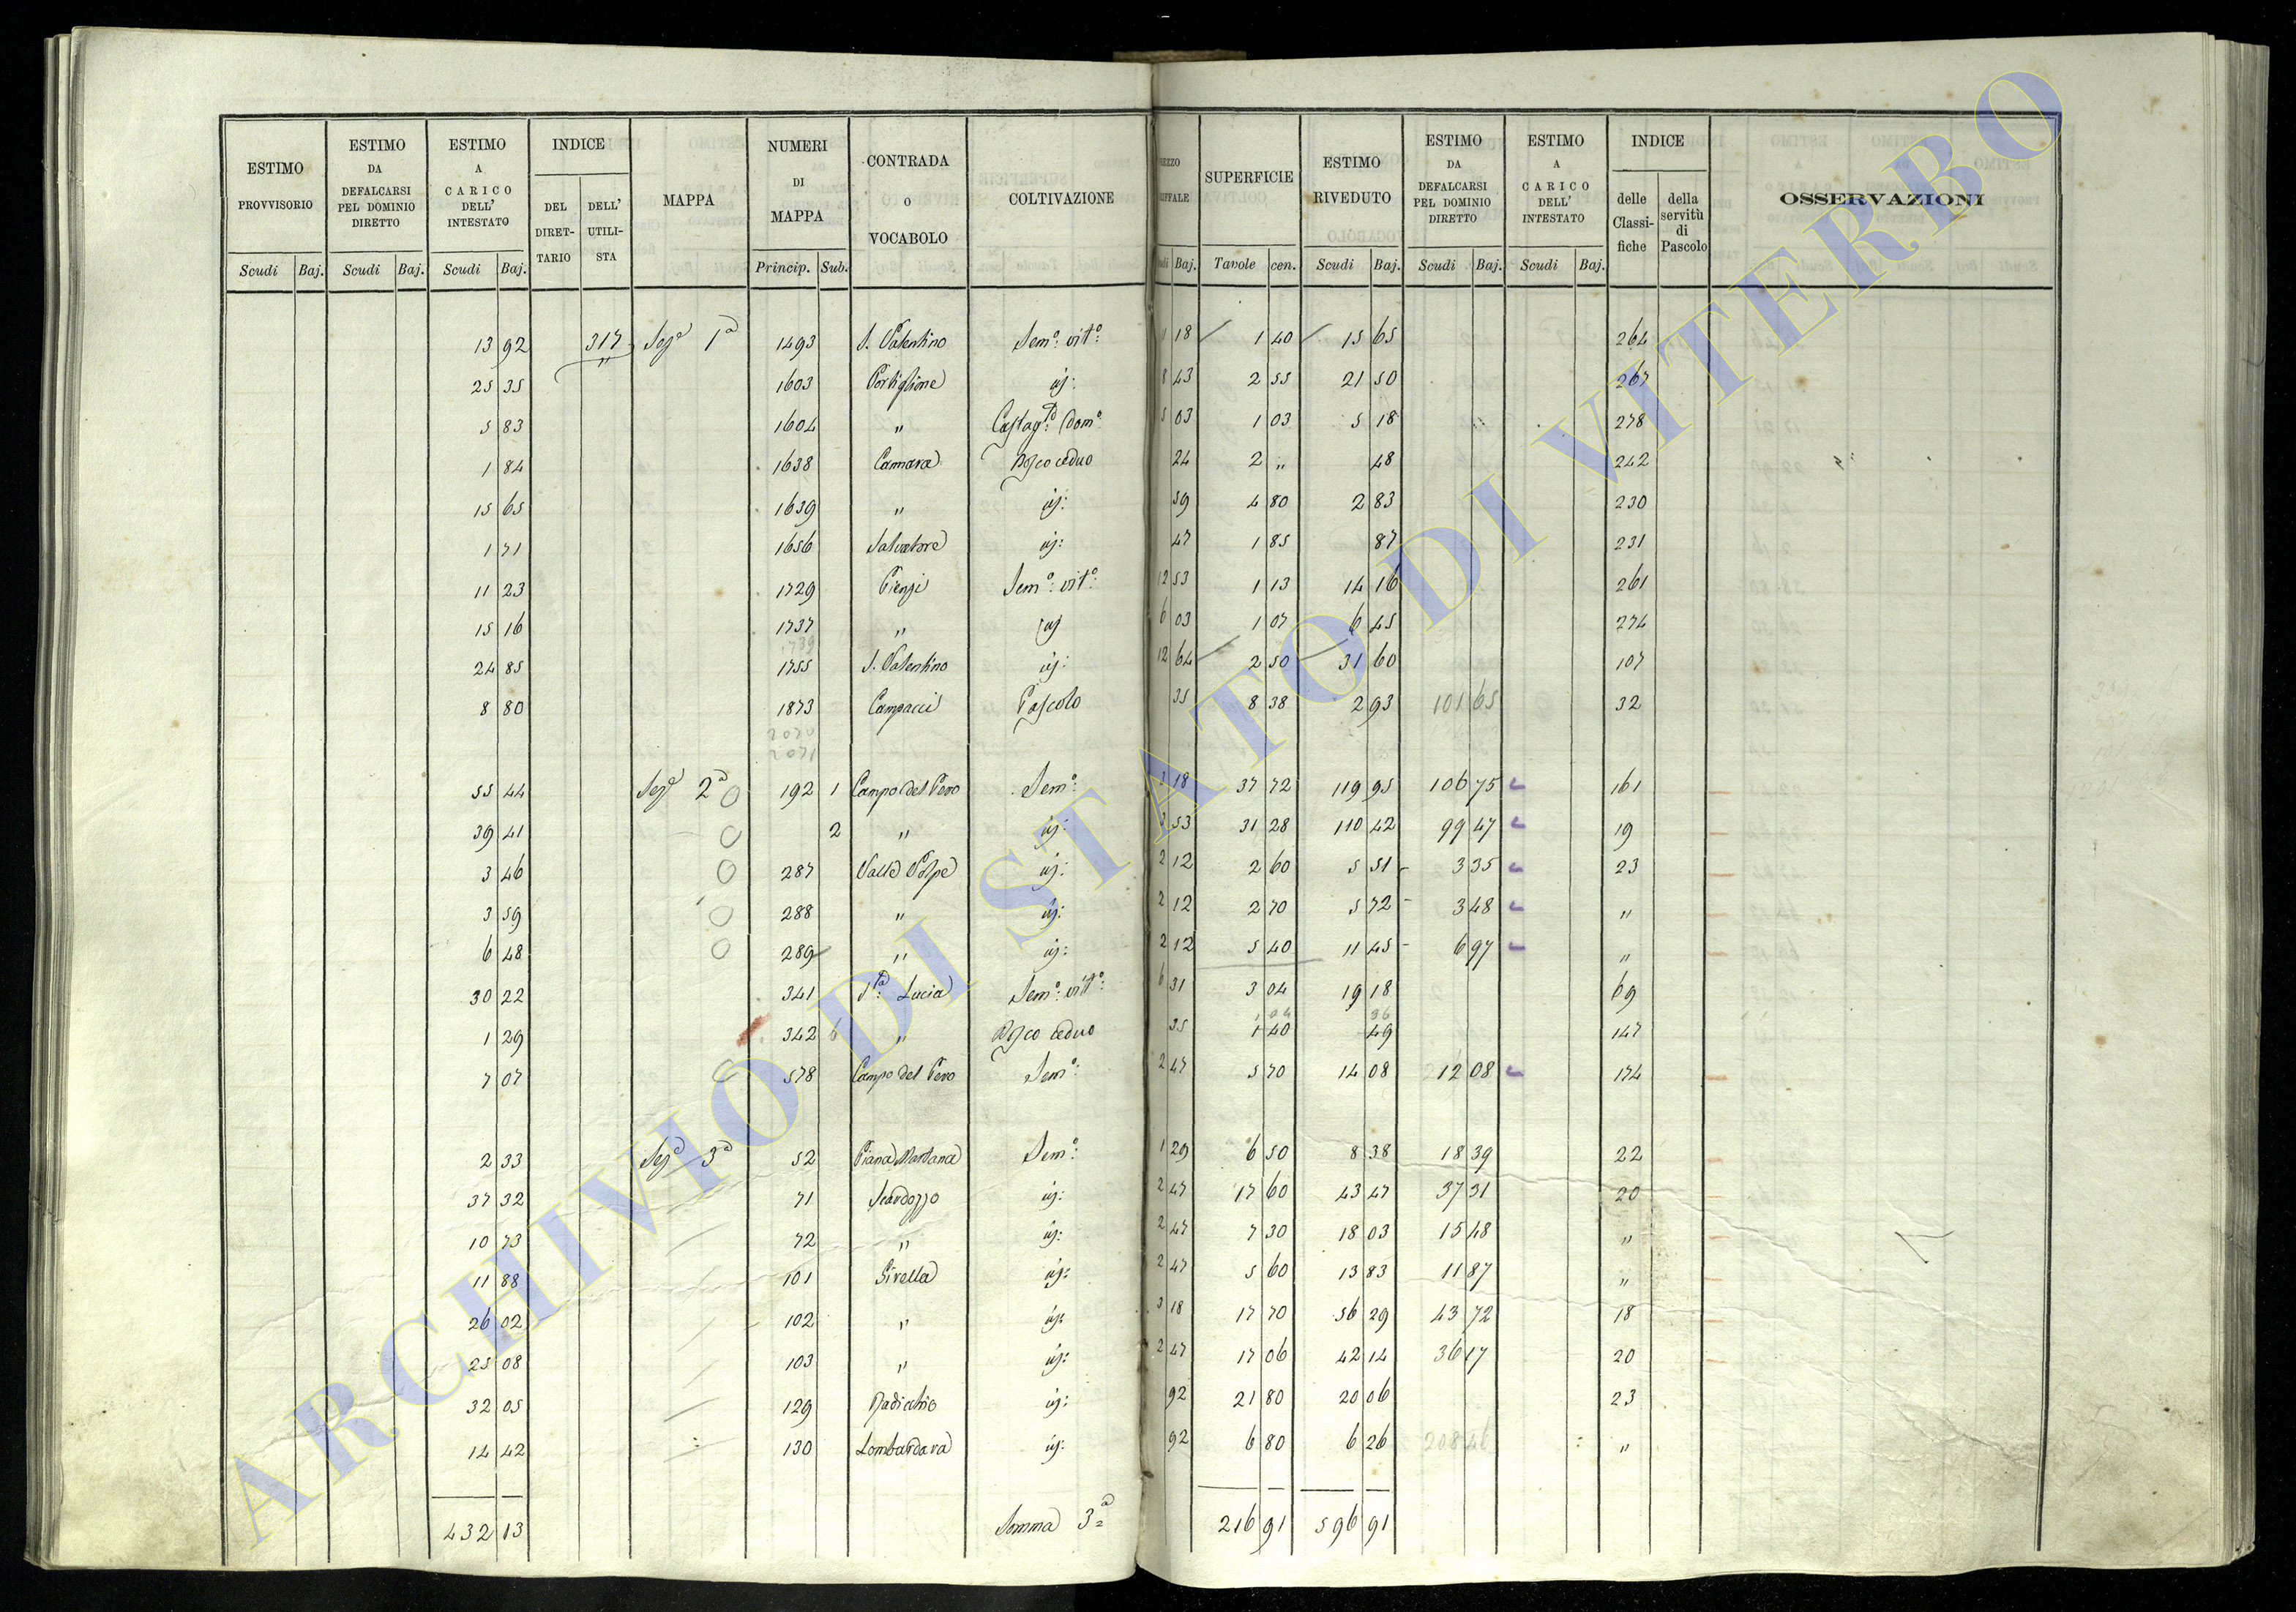 ESTIMO PROVVISORIO | ESTIMO DA DEFALCARSI PEL DOMINIO DIRETTO | ESTIMO A CARICO DELL' INTESTATO | INDICE | MAPPA | NUMERI DI MAPPA | CONTRADA O VOCABOLO | COLTIVAZIONE | SUPERFICIE | ESTIMO RIVEDUTO | ESTIMO DA DEFALCARSI PEL DOMINIO DIRETTO | ESTIMO A CARICO DELL' INTESTATO | INDICE | OSSERVAZIONI
DEL DIRET-TARIO | DELL' UTILI-STA | delle Classi-fiche | della servitù di Pascolo
Scudi Baj. Scudi Baj. Scudi Baj. Princip. Sub. Baj. Tavole cen. Scudi Baj. Scudi Baj. Scudi Baj.
13 92 317 Sez.e 1a 1493 S. Valentino Sem.o vit.o 1 18 1 40 15 65 264
25 35 1603 Portiglione id: 8 43 2 55 21 50 267
5 83 1604 " Castag.to Dom.o 5 03 1 03 5 18 278
1 84 1638 Cannara Bosco ceduo 24 2 " 48 242
15 65 1639 " id: 59 4 80 2 83 230
1 71 1656 Salvatore id: 47 1 85 87 231
11 23 1729 Pienzi Sem.o vit.o 12 53 1 13 14 16 261
15 16 1737 " id 6 03 1 07 6 45 274
1739
24 85 1755 S. Valentino id: 12 64 2 50 31 60 107
8 80 1873 Campacci Pascolo 35 8 38 2 93 101 65 32
55 44 Sez.e 2a 192 1 Campo del Pero Sem.o 3 18 37 72 119 95 106 75 161
39 41 2 " id: 3 53 31 28 110 42 99 47 19
3 46 287 Valle Volpe id: 2 12 2 60 5 51 3 35 23
3 59 288 " id: 2 12 2 70 5 72 3 48 "
6 48 289 " id: 2 12 5 40 11 45 6 97 "
30 22 341 S.ta Lucia Sem.o vit.o 6 31 3 04 19 18 69
1 29 342 6 " Bosco ceduo 35 1 40 49 147
7 07 578 Campo del Pero Sem.o 2 47 5 70 14 08 12 08 174
2 33 Sez.e 3a 52 Piana Martana Sem.o 1 29 6 50 8 38 18 39 22
37 32 71 Scardozzo id: 2 47 17 60 43 47 37 31 20
10 73 72 " id: 2 47 7 30 18 03 15 48 "
11 88 101 Sivella id: 2 47 5 60 13 83 11 87 "
26 02 102 " id: 3 18 17 70 56 29 43 72 18
25 08 103 " id: 2 47 17 06 42 14 36 17 20
32 05 129 Radichio id: 92 21 80 20 06 23
14 42 130 Lombardara id: 92 6 80 6 26 208 46 "
432 13 Somma 3a 216 91 596 91
ARCHIVIO DI STATO DI VITERBO